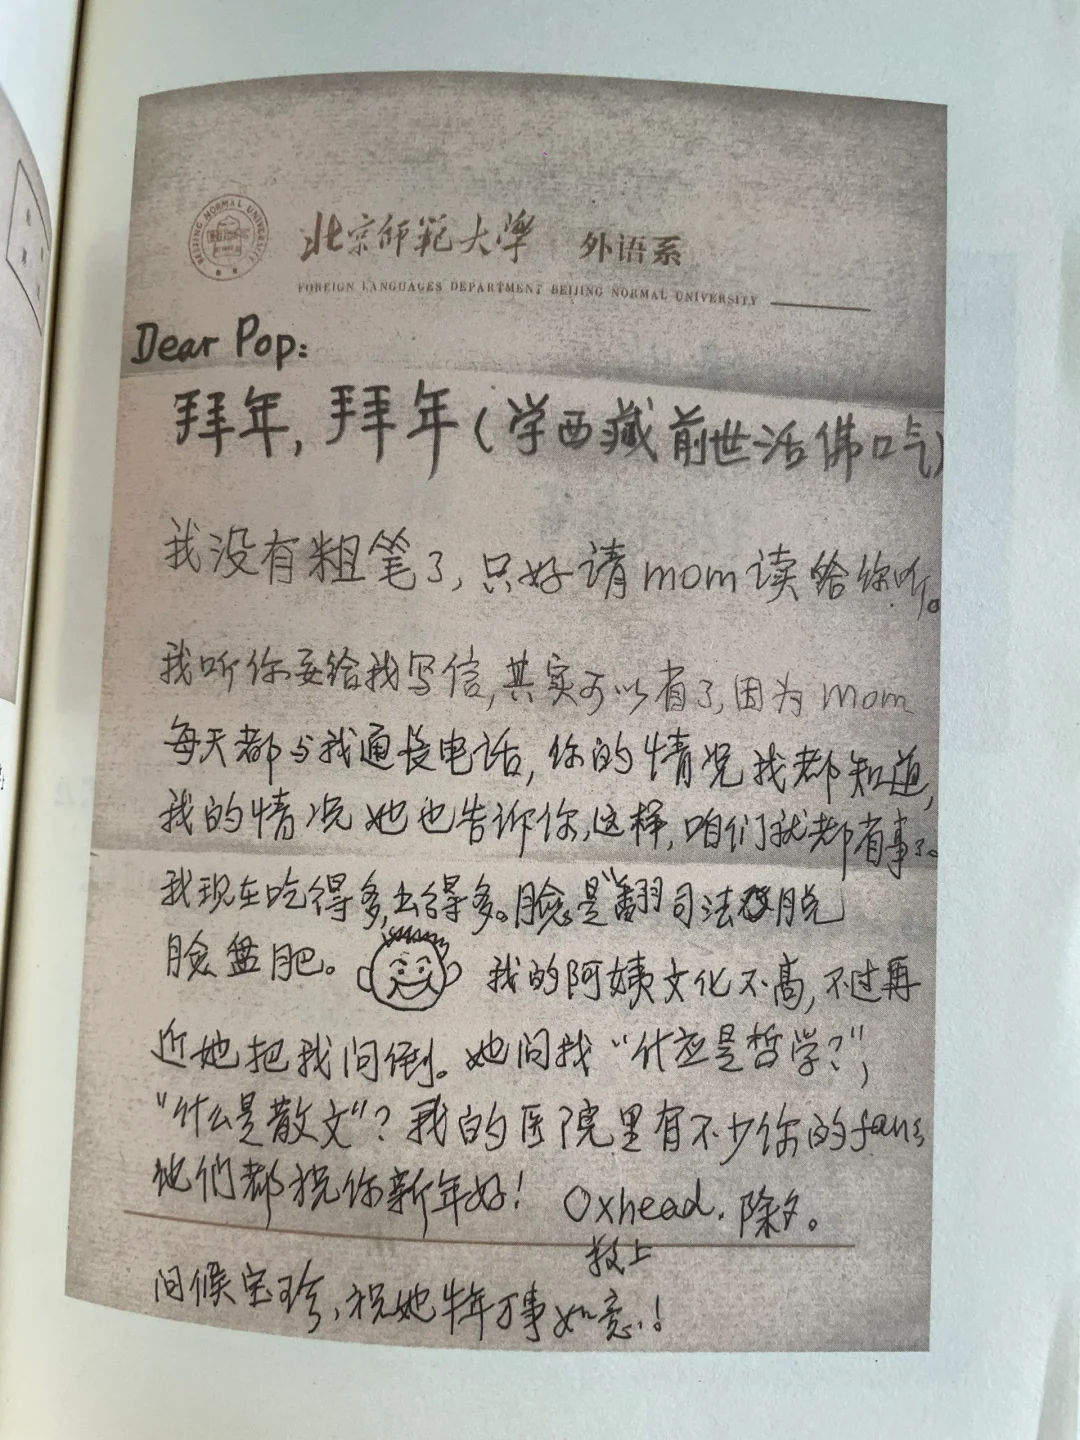 BEIJING NORMAL UNIVERSITY
北京师范大学 外语系
FOREIGN LANGUAGES DEPARTMENT BEIJING NORMAL UNIVERSITY
Dear Pop:
拜年,拜年(学西藏前世活佛口气)
我没有粗笔了,只好请mom读给你听。
我听你要给我写信,其实可以省了,因为mom
每天都与我通长电话,你的情况我都知道,
我的情况她也告诉你,这样,咱们就都省事了。
我现在吃得多,出得多。脸是"翻司法脱
脸盘肥。 我的阿姨文化不高,不过再
近她把我问倒。她问我"什么是哲学?",
"什么是散文"?我的医院里有不少你的fans
他们都祝你新年好! Oxhead.除夕。
敬上
问候宝珍,祝她牛年万事如意!